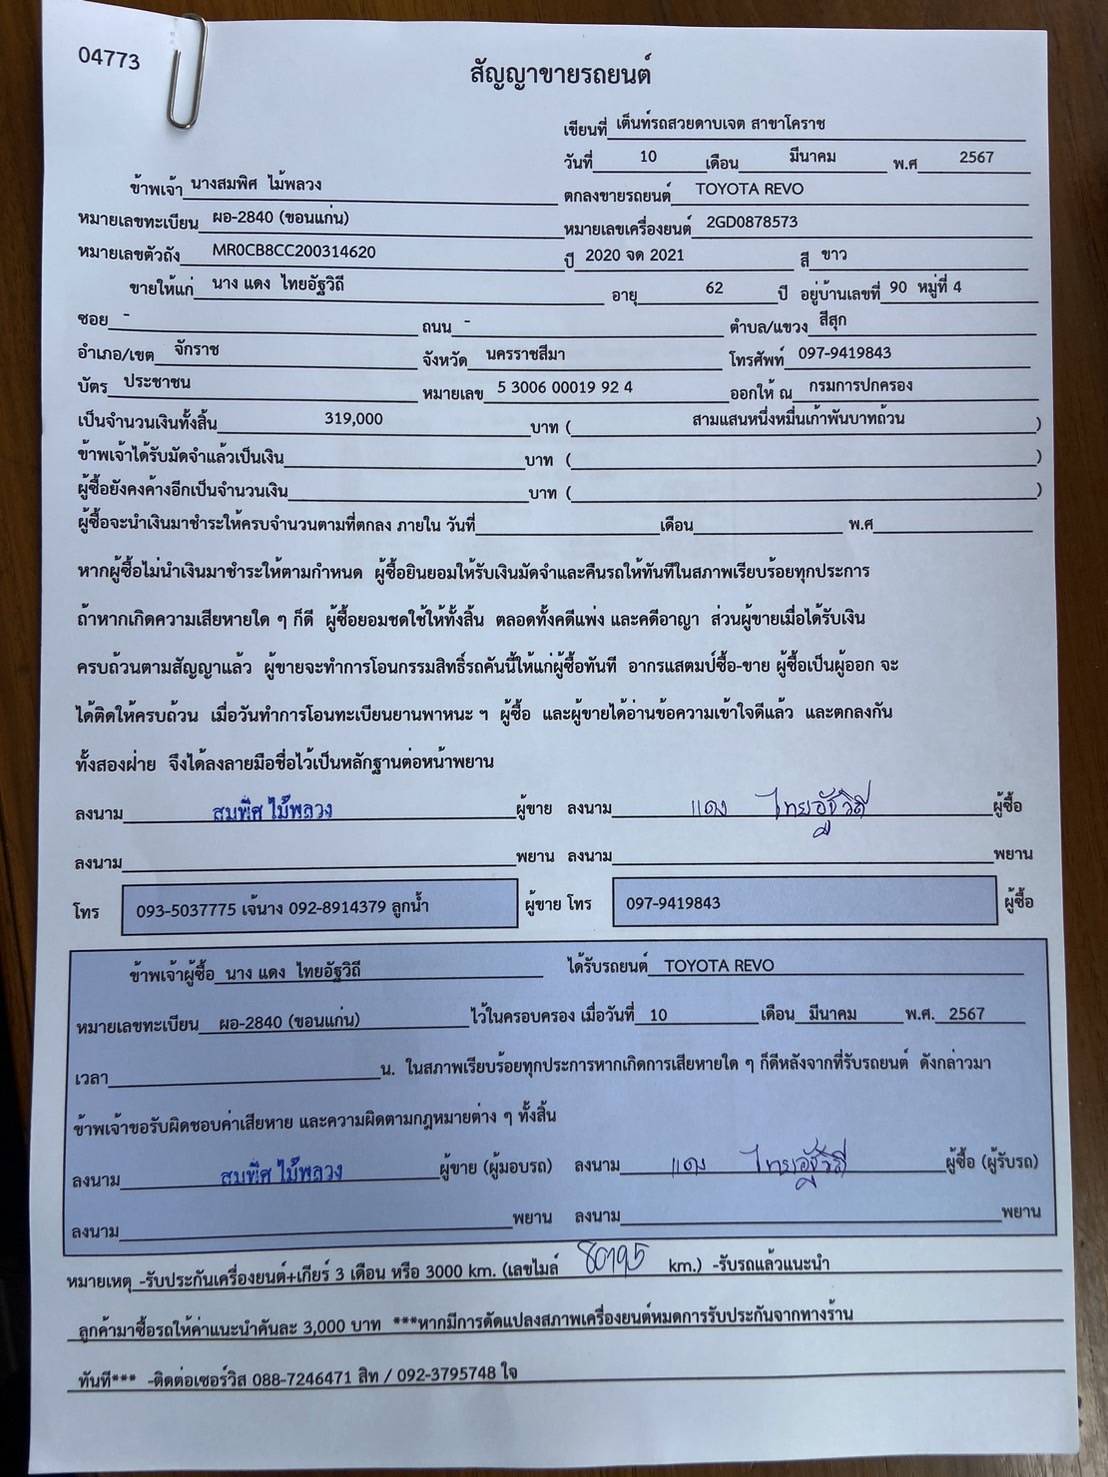 04773
สัญญาขายรถยนต์
เขียนที่ เต็นท์รถสวยดาบเจต สาขาโคราช
วันที่ 10 เดือน มีนาคม พ.ศ 2567
ข้าพเจ้า นางสมพิศ ไม้พลวง ตกลงขายรถยนต์ TOYOTA REVO
หมายเลขทะเบียน ผอ-2840 (ขอนแก่น) หมายเลขเครื่องยนต์ 2GD0878573
หมายเลขตัวถัง MR0CB8CC200314620 ปี 2020 จด 2021 สี ขาว
ขายให้แก่ นาง แดง ไทยอัฐวิถี อายุ 62 ปี อยู่บ้านเลขที่ 90 หมู่ที่ 4
ซอย - ถนน - ตำบล/แขวง สีสุก
อำเภอ/เขต จักราช จังหวัด นครราชสีมา โทรศัพท์ 097-9419843
บัตร ประชาชน หมายเลข 5 3006 00019 92 4 ออกให้ ณ กรมการปกครอง
เป็นจำนวนเงินทั้งสิ้น 319,000 บาท ( สามแสนหนึ่งหมื่นเก้าพันบาทถ้วน )
ข้าพเจ้าได้รับมัดจำแล้วเป็นเงิน บาท ( )
ผู้ซื้อยังคงค้างอีกเป็นจำนวนเงิน บาท ( )
ผู้ซื้อจะนำเงินมาชำระให้ครบจำนวนตามที่ตกลง ภายใน วันที่ เดือน พ.ศ
หากผู้ซื้อไม่นำเงินมาชำระให้ตามกำหนด ผู้ซื้อยินยอมให้รับเงินมัดจำและคืนรถให้ทันทีในสภาพเรียบร้อยทุกประการ
ถ้าหากเกิดความเสียหายใด ๆ ก็ดี ผู้ซื้อยอมชดใช้ให้ทั้งสิ้น ตลอดทั้งคดีแพ่ง และคดีอาญา ส่วนผู้ขายเมื่อได้รับเงิน
ครบถ้วนตามสัญญาแล้ว ผู้ขายจะทำการโอนกรรมสิทธิ์รถคันนี้ให้แก่ผู้ซื้อทันที อากรแสตมป์ซื้อ-ขาย ผู้ซื้อเป็นผู้ออก จะ
ได้ติดให้ครบถ้วน เมื่อวันทำการโอนทะเบียนยานพาหนะ ฯ ผู้ซื้อ และผู้ขายได้อ่านข้อความเข้าใจดีแล้ว และตกลงกัน
ทั้งสองฝ่าย จึงได้ลงลายมือชื่อไว้เป็นหลักฐานต่อหน้าพยาน
ลงนาม สมพิศ ไม้พลวง ผู้ขาย ลงนาม แดง ไทยอัฐวิถี ผู้ซื้อ
ลงนาม พยาน ลงนาม พยาน
โทร 093-5037775 เจ้นาง 092-8914379 ลูกน้ำ ผู้ขาย โทร 097-9419843 ผู้ซื้อ
ข้าพเจ้าผู้ซื้อ นาง แดง ไทยอัฐวิถี ได้รับรถยนต์ TOYOTA REVO
หมายเลขทะเบียน ผอ-2840 (ขอนแก่น) ไว้ในครอบครอง เมื่อวันที่ 10 เดือน มีนาคม พ.ศ. 2567
เวลา น. ในสภาพเรียบร้อยทุกประการหากเกิดการเสียหายใด ๆ ก็ดีหลังจากที่รับรถยนต์ ดังกล่าวมา
ข้าพเจ้าขอรับผิดชอบค่าเสียหาย และความผิดตามกฎหมายต่าง ๆ ทั้งสิ้น
ลงนาม สมพิศ ไม้พลวง ผู้ขาย (ผู้มอบรถ) ลงนาม แดง ไทยอัฐวิถี ผู้ซื้อ (ผู้รับรถ)
ลงนาม พยาน ลงนาม พยาน
หมายเหตุ -รับประกันเครื่องยนต์+เกียร์ 3 เดือน หรือ 3000 km. (เลขไมล์ 80195 km.) -รับรถแล้วแนะนำ
ลูกค้ามาซื้อรถให้ค่าแนะนำคันละ 3,000 บาท ***หากมีการดัดแปลงสภาพเครื่องยนต์หมดการรับประกันจากทางร้าน
ทันที*** -ติดต่อเซอร์วิส 088-7246471 สิท / 092-3795748 ใจ